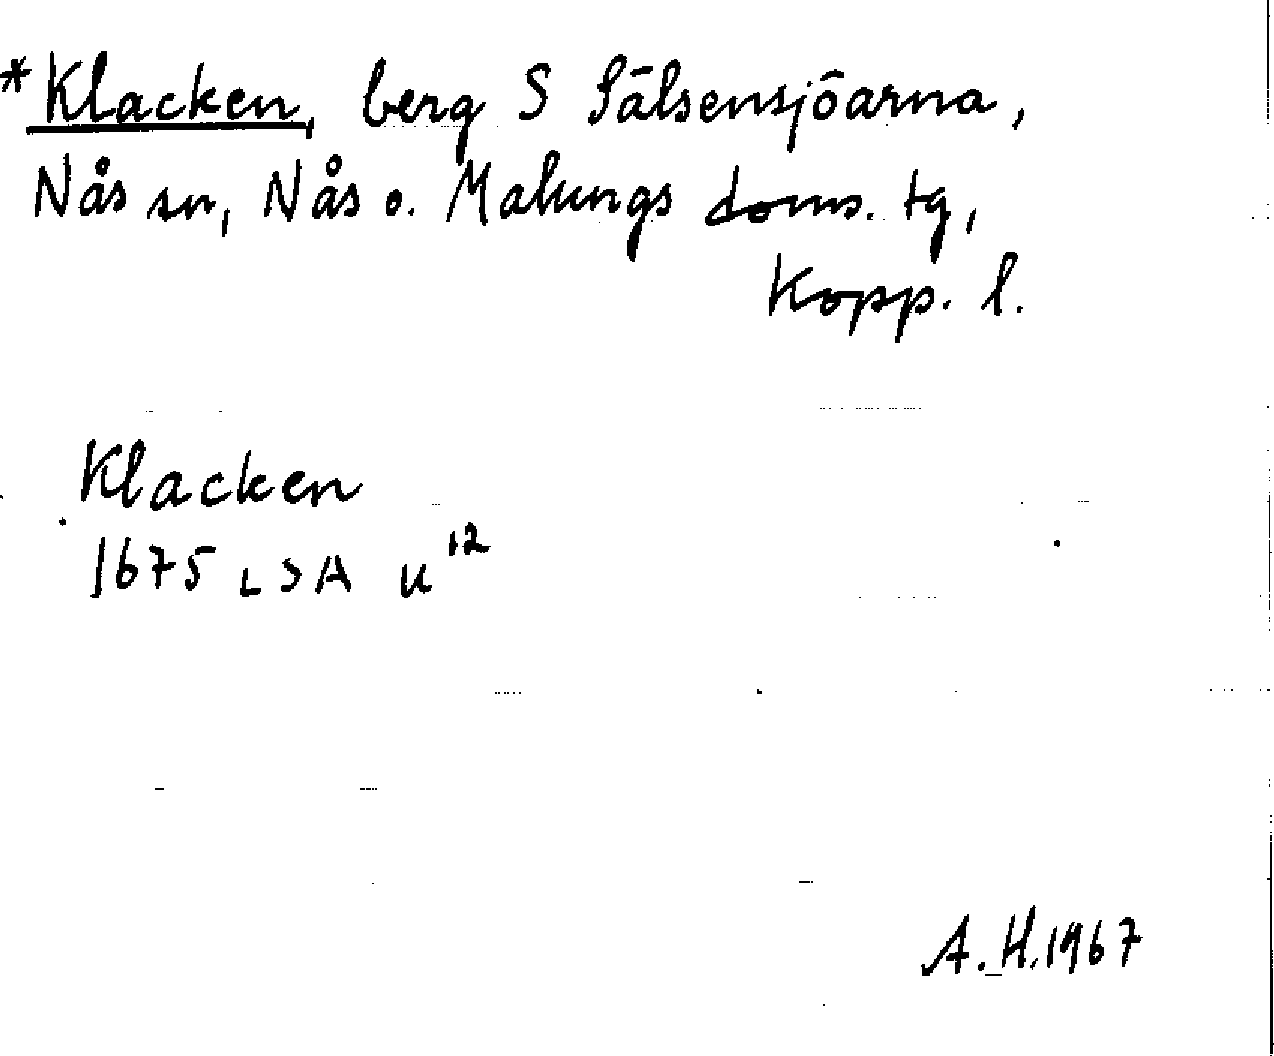 *Klacken, berg S Sälsensjöarna,
Nås sn, Nås o. Malungs doms. tg,
Kopp. l.
Klacken
1675 LSA U¹²
A.H. 1967